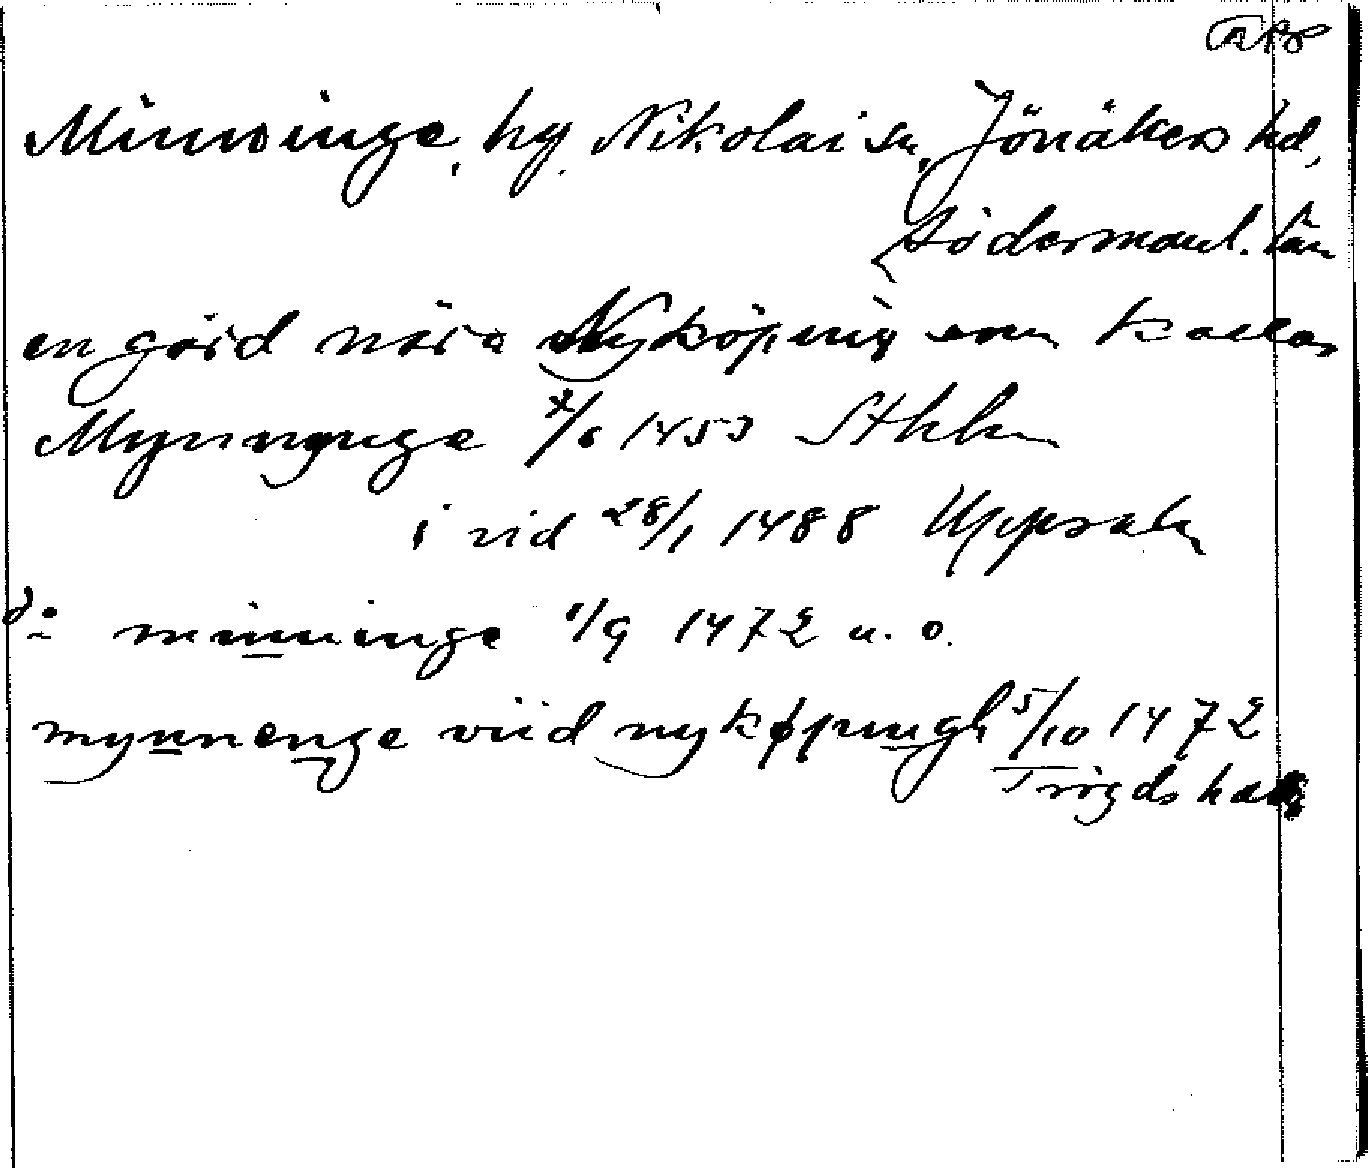 Minninge, hg. Nikolai sn, Jönåkers hd,
Södermanl. län
en gård nära Nyköping som kallas
Mynnynge 1453 Sthlm
i vid 28/1 1488 Uppsala
d:o minninge 1/9 1472 u. o.
mynnenge viid nykøpungh 5/10 1472
Trögds hd